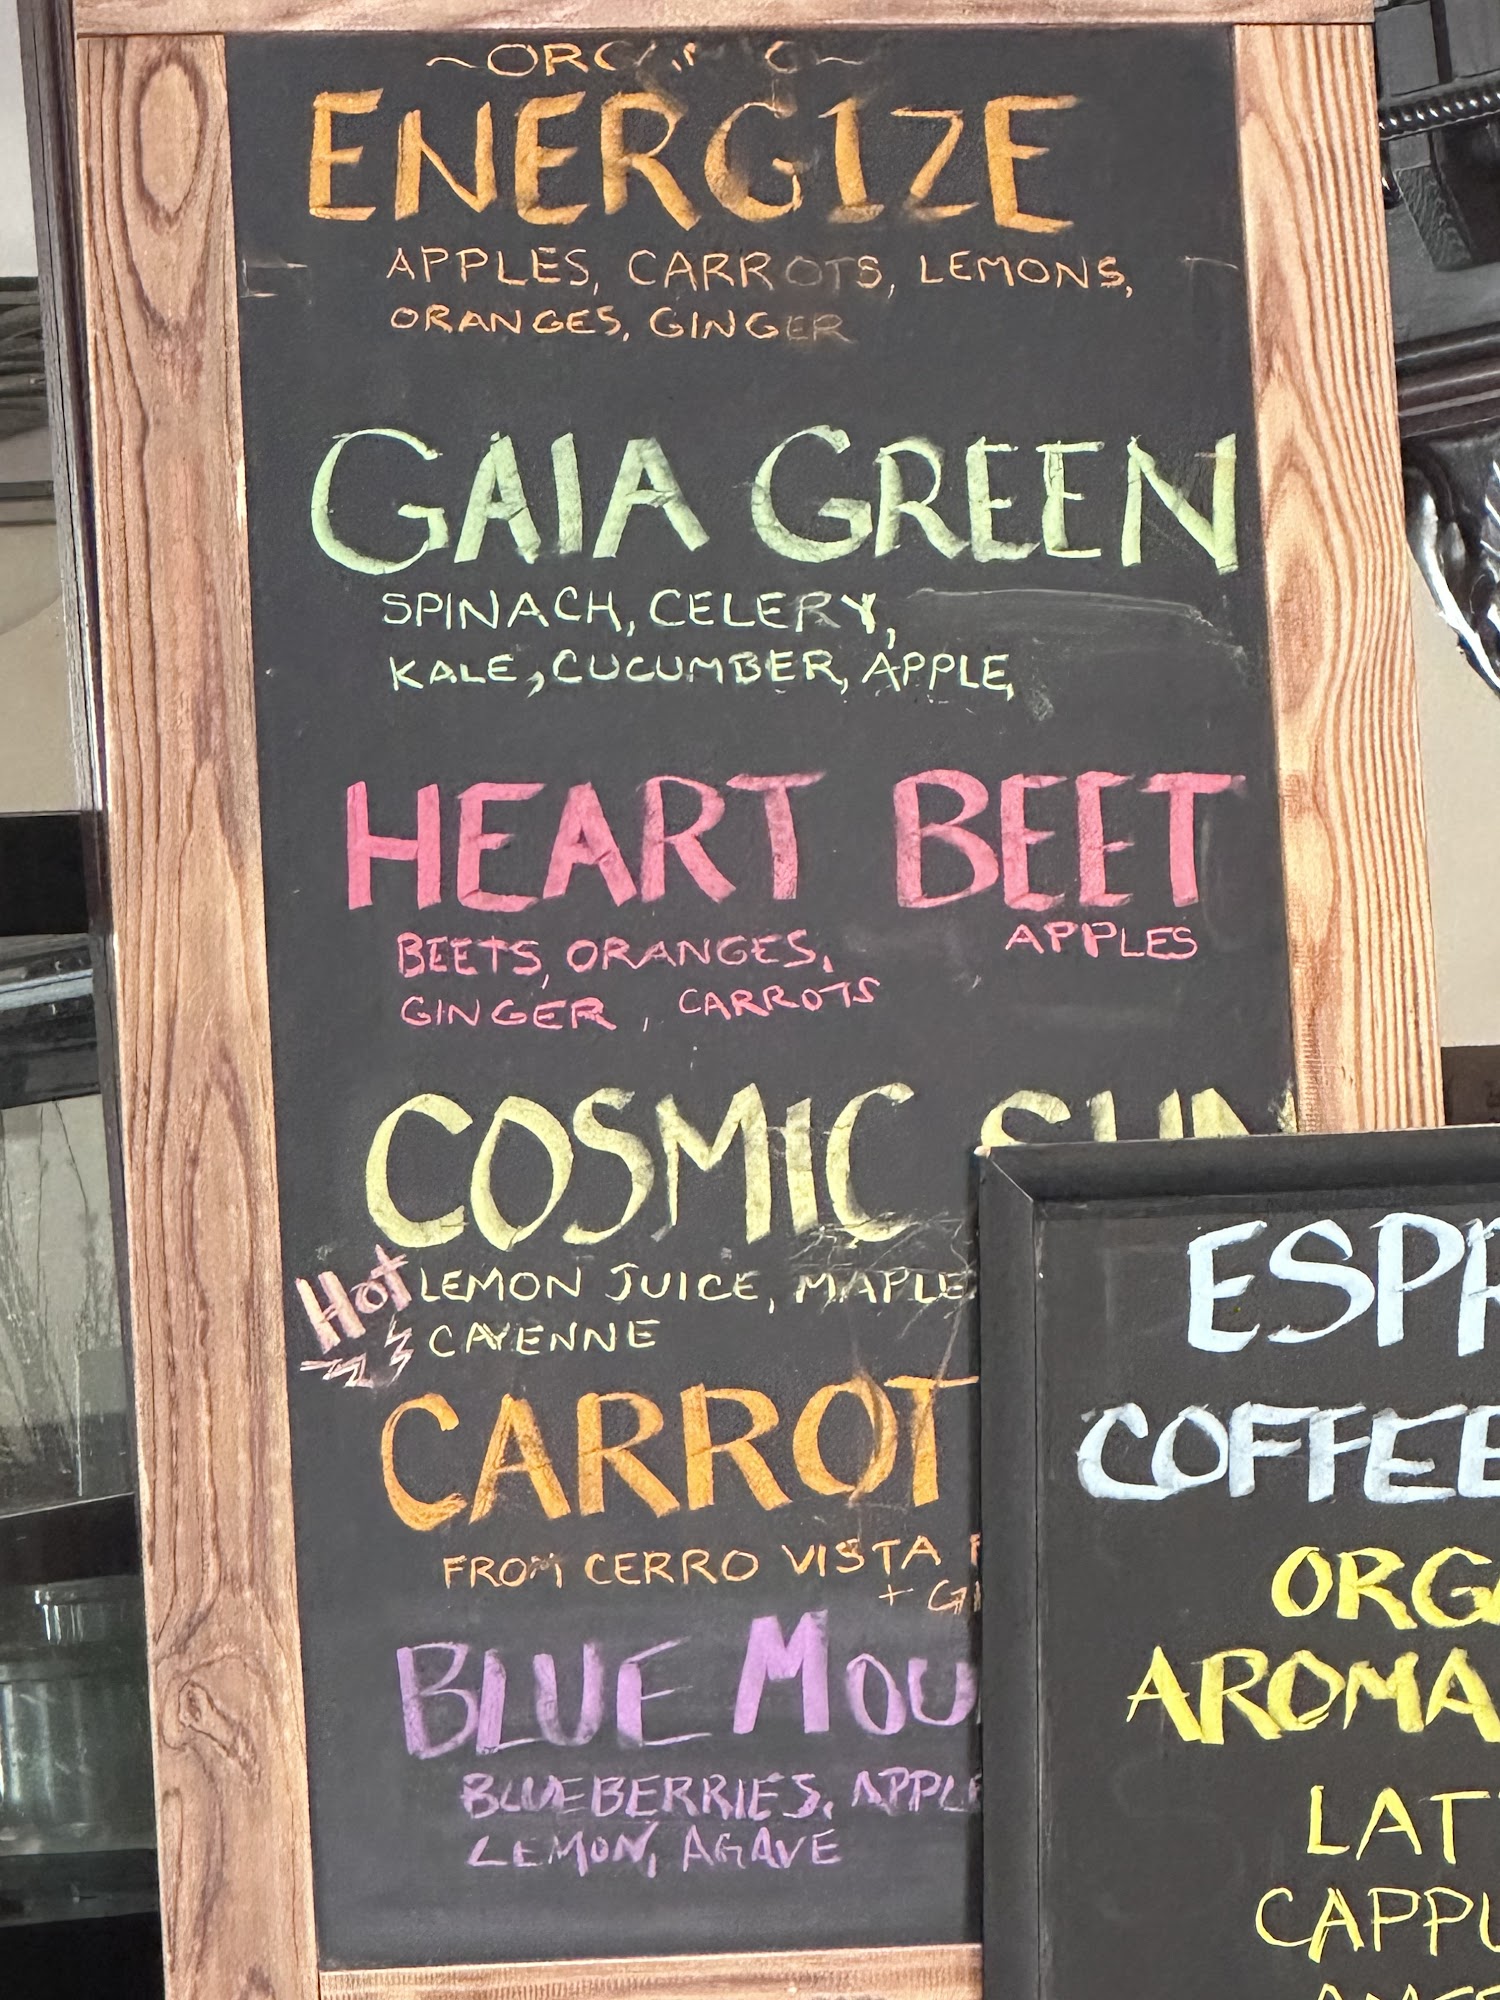 ENERGIZE
APPLES, CARROTS, LEMONS,
ORANGES, GINGER
GAIA GREEN
SPINACH, CELERY,
KALE, CUCUMBER, APPLE,
HEART BEET
BEETS, ORANGES, APPLES
GINGER, CARROTS
COSMIC SUN
Hot LEMON JUICE, MAPLE
CAYENNE
CARROT
FROM CERRO VISTA
+
BLUE MOU
BLUEBERRIES, APPLE
LEMON, AGAVE
ESPR
COFFEE
ORGA
AROMA
LAT
CAPPU